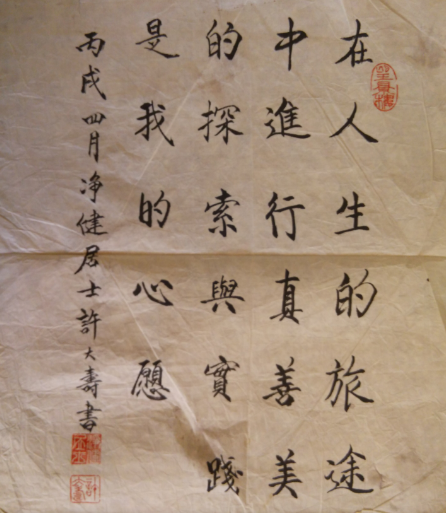 在人生的旅途
中進行真善美
的探索與實踐
是我的心願
丙戌四月净健居士許大壽書